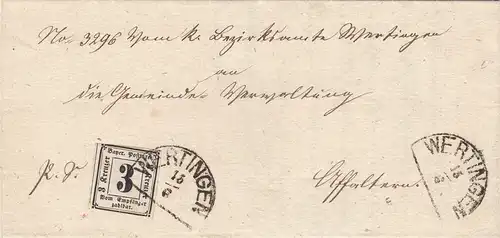 No. 3296 Vom k. Bezirksamte Wertingen
an
die Gemeinde-Verwaltung
P. S.
Affaltern.
Bayer. Posttaxe
3 Kreuzer
3
Kreuzer
Vom Empfänger
zahlbar.
WERTINGEN
13
WERTINGEN
13